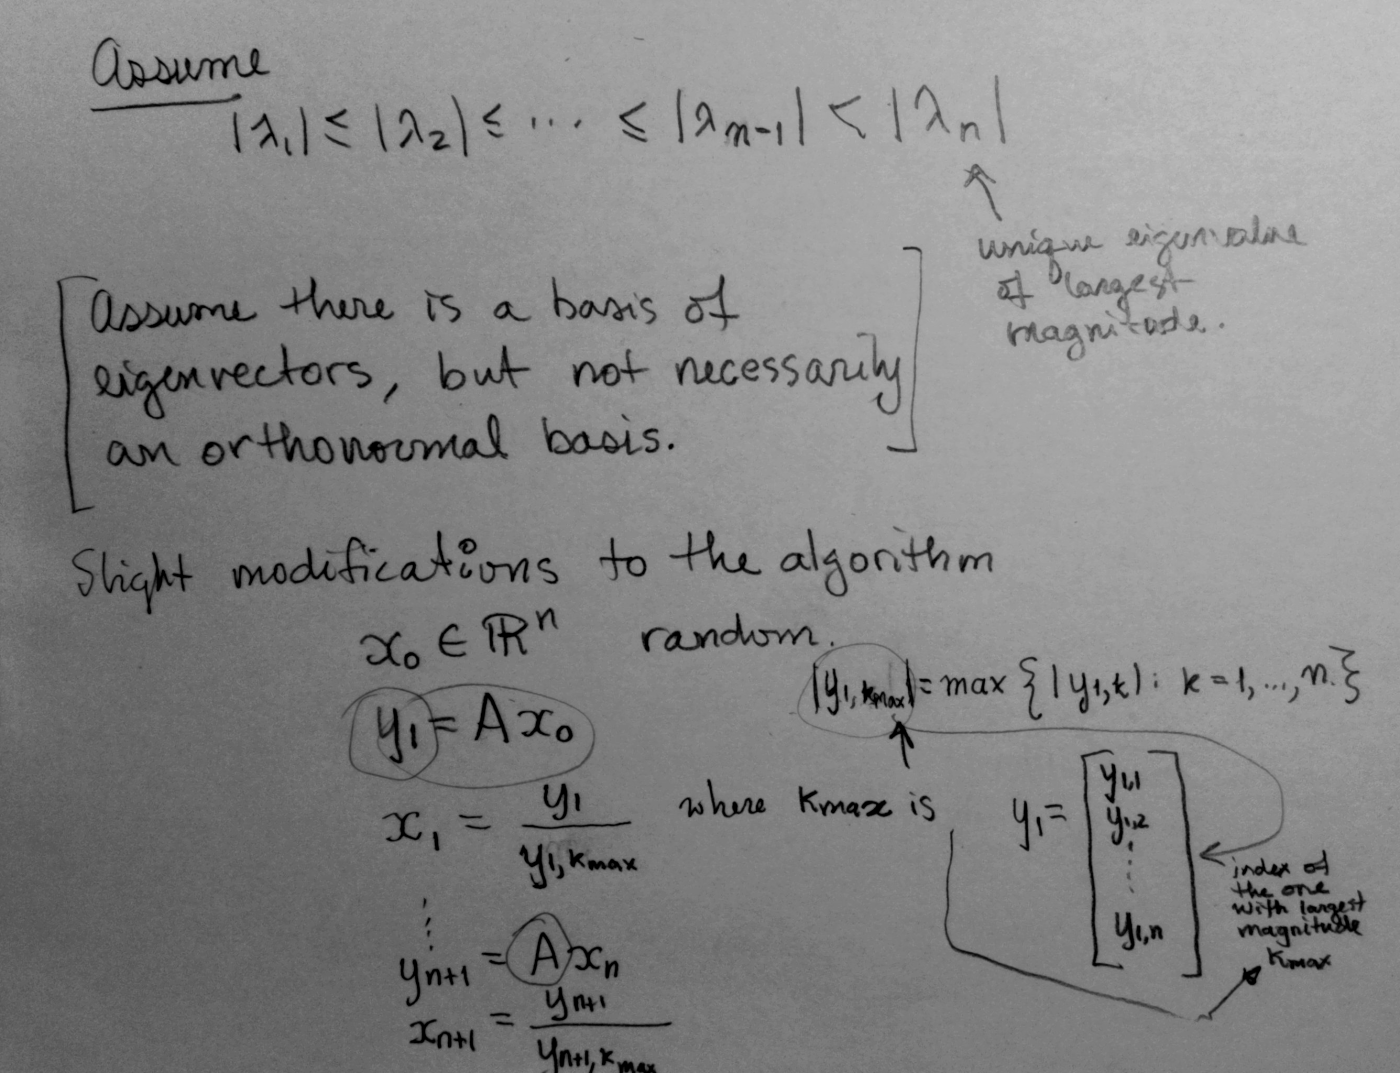 Assume
|λ₁| ≤ |λ₂| ≤ ··· ≤ |λₙ₋₁| < |λₙ|
↑
unique eigenvalue
of largest
magnitude.
[Assume there is a basis of
eigenvectors, but not necessarily
an orthonormal basis.]
Slight modifications to the algorithm
x₀ ∈ ℝⁿ random.
|y₁,ₖₘₐₓ| = max {|y₁,ₖ| : k = 1, ..., n.}
y₁ = Ax₀
x₁ = y₁ / y₁,ₖₘₐₓ where kmax is
y₁ = [y₁,₁ y₁,₂ ⋮ y₁,ₙ]
index of
the one
with largest
magnitude
kmax
⋮
yₙ₊₁ = Axₙ
xₙ₊₁ = yₙ₊₁ / yₙ₊₁,ₖₘₐₓ